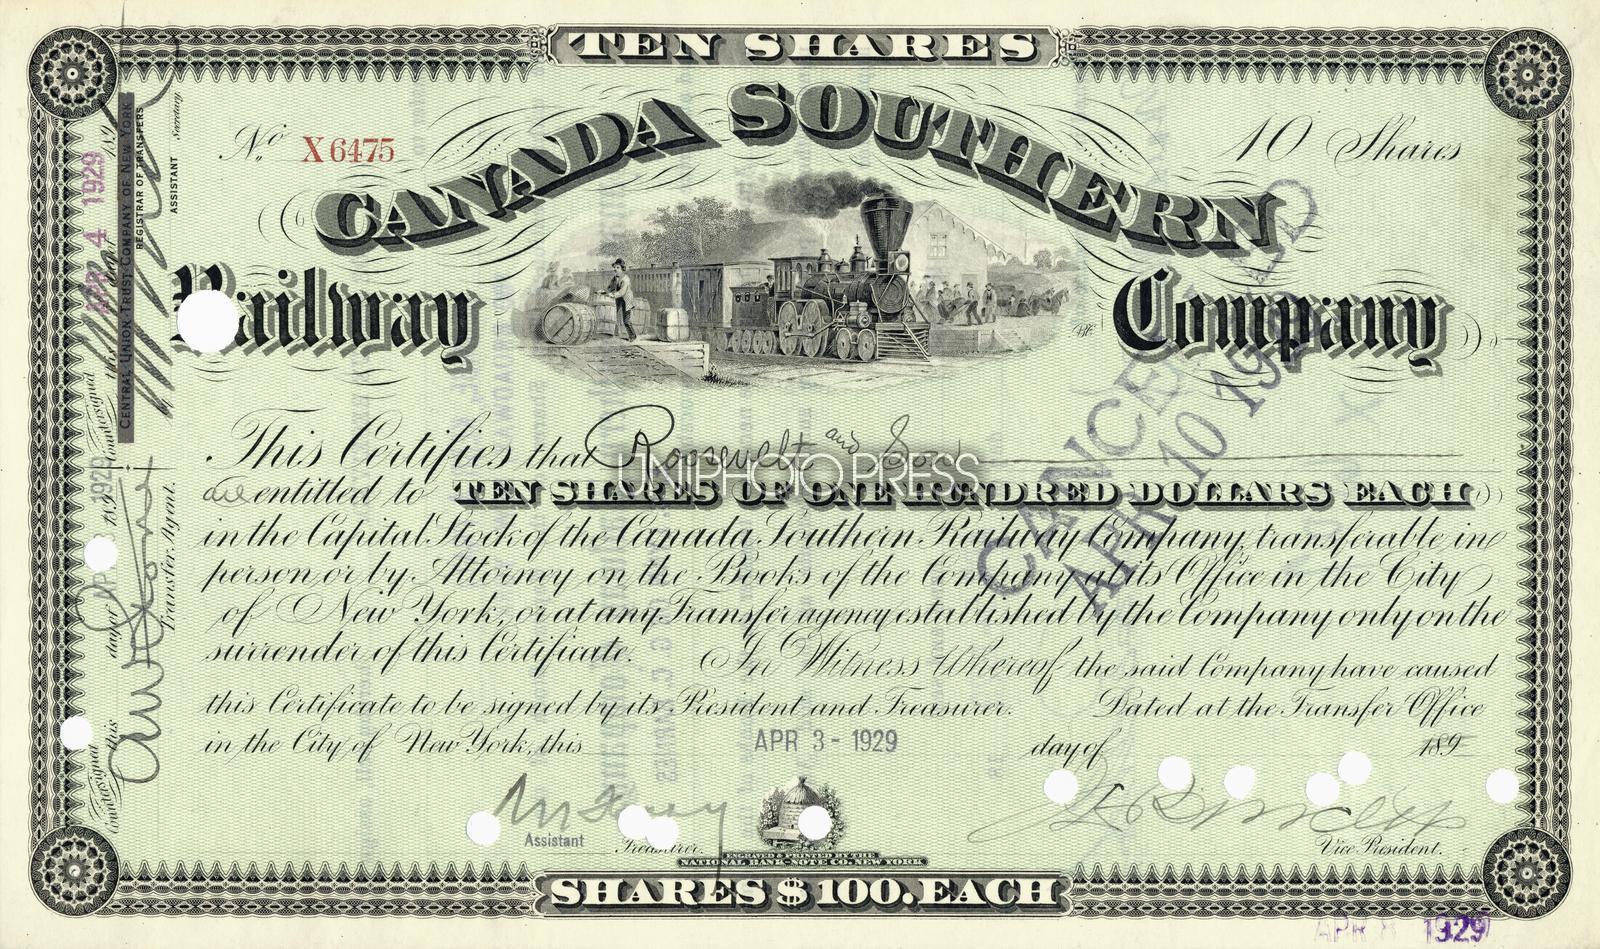 TEN SHARES
No. X6475
10 Shares
CANADA SOUTHERN
Railway Company
This Certifies that Roosevelt and Son
are entitled to TEN SHARES OF ONE HUNDRED DOLLARS EACH
in the Capital Stock of the Canada Southern Railway Company, transferable in
person or by Attorney on the Books of the Company at its Office in the City
of New York, or at any Transfer agency established by the Company only on the
surrender of this Certificate. In Witness Whereof the said Company have caused
this Certificate to be signed by its President and Treasurer. Dated at the Transfer Office
in the City of New York, this APR 3 - 1929 day of 189
Assistant Treasurer.
Vice President.
ENGRAVED & PRINTED BY THE
NATIONAL BANK-NOTE CO. NEW YORK
SHARES $100. EACH
APR 8 1929
CANCELLED
APR 10 19
UNIPHOTO PRESS
Countersigned this day of APR 1929 189
Transfer Agent.
Countersigned this
APR 4 1929
CENTRAL UNION TRUST COMPANY OF NEW YORK
REGISTRAR OF TRANSFERS
ASSISTANT Secretary.